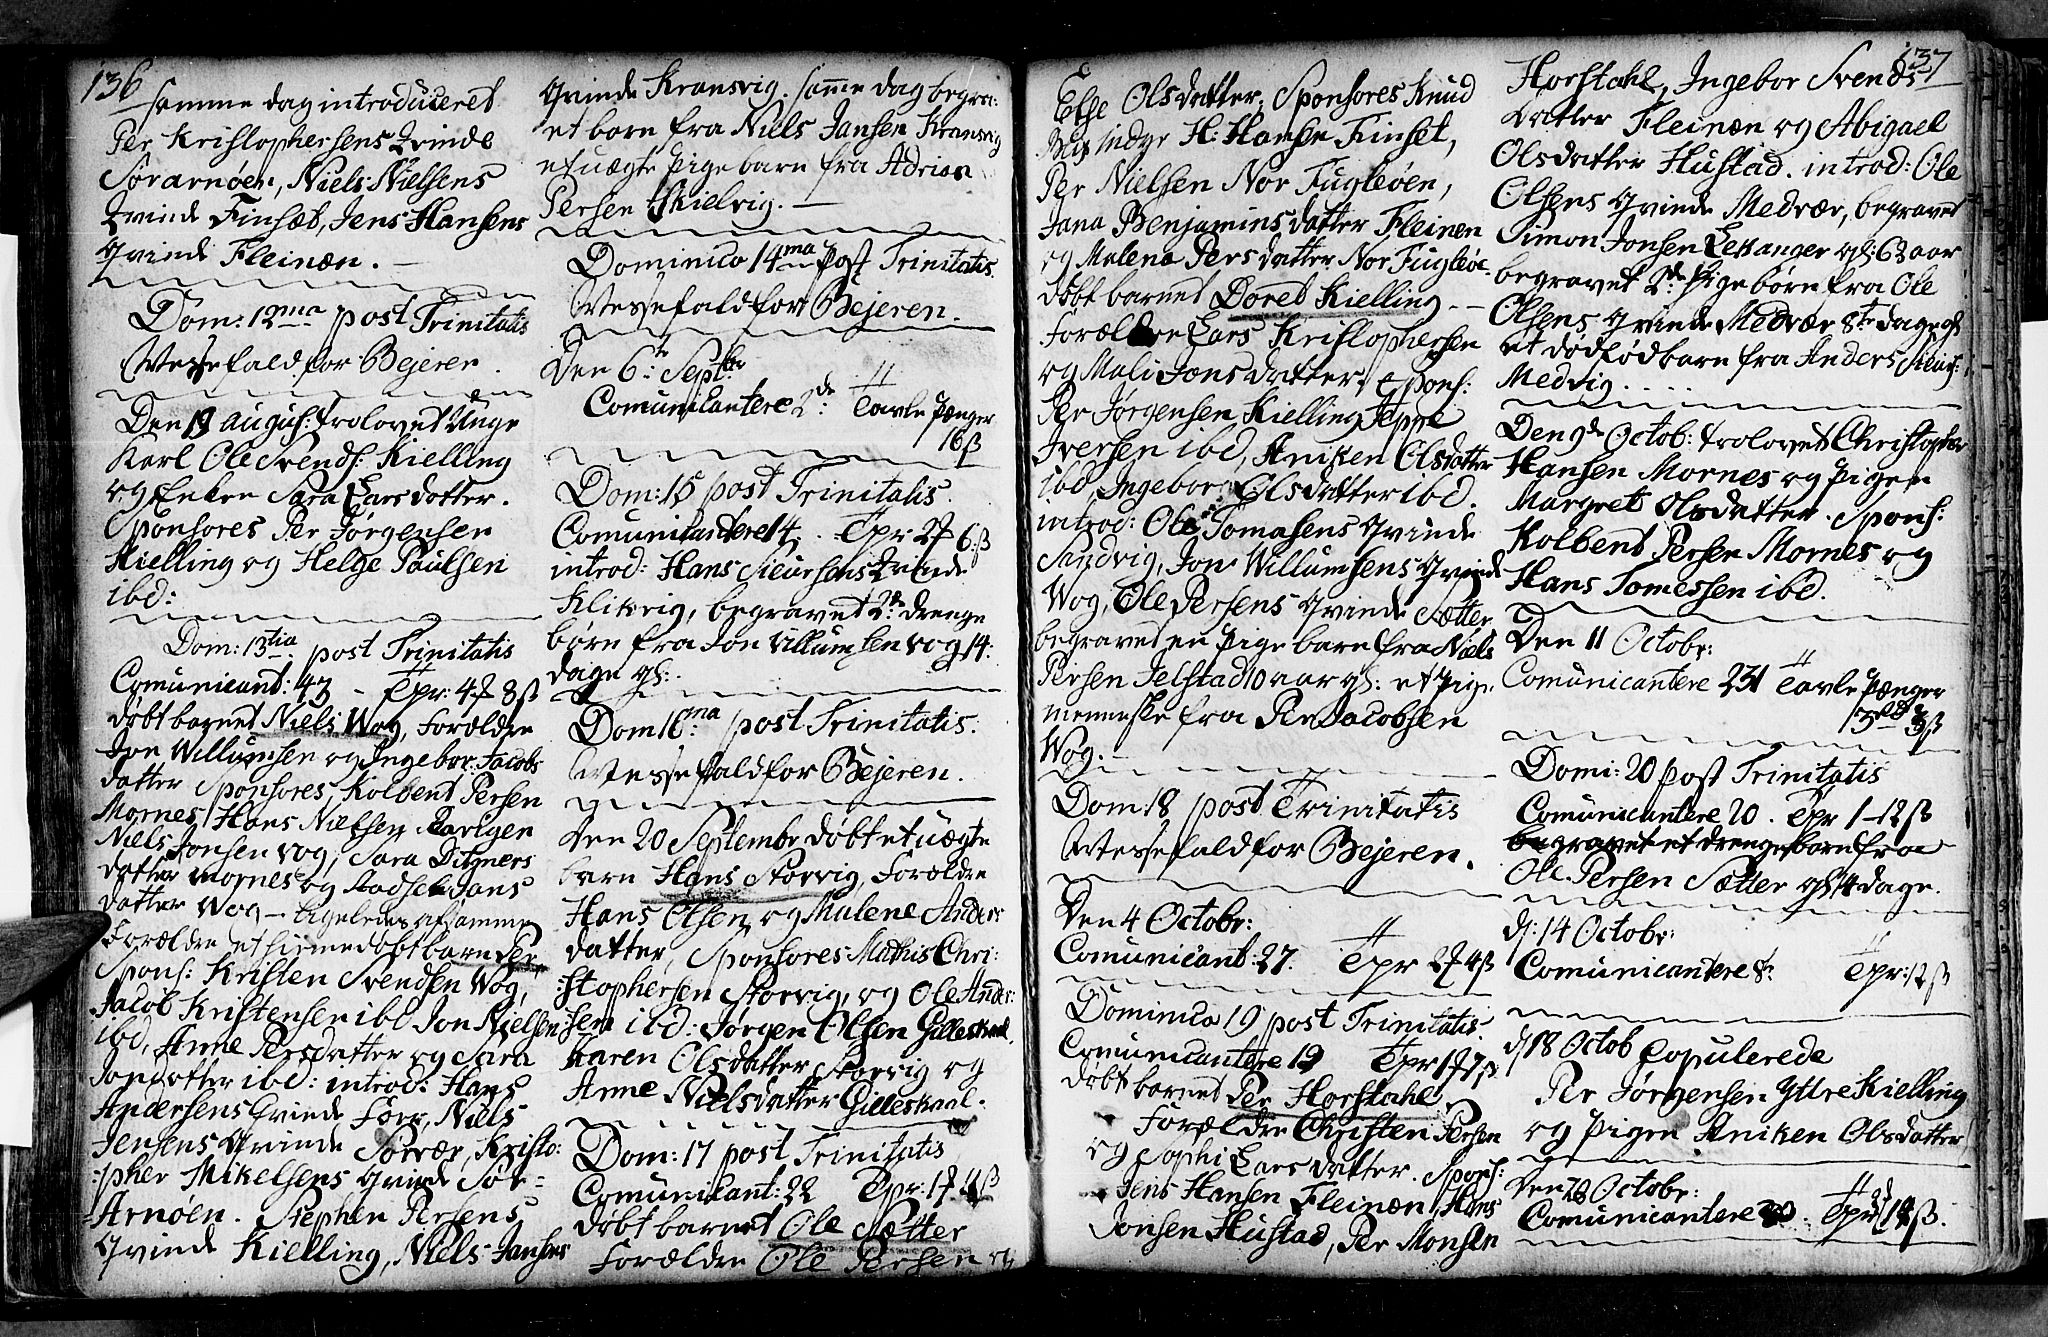 136
samme dag introduceret
Per Kristophersens Qvinde
Sørarnøen, Niels Nielsens
Qvinde Finsæt, Jens Hansens
Qvinde Fleinæn.
Dom: 12ma post Trinitatis
Messefald for Bejeren.
Den 19 August: trolovet Unge
Karl Ole Svends: Kielling
og Enken Sara Larsdatter.
Sponsores Per Jørgensen
Kielling og Helge Paulsen
ibd:
Dom: 13tia post Trinitatis
Comunicant: 43 - Tpr: 4 8ß
døbt barnet Niels Wog, Forældre
Jon Willumsen og Ingebor Jacobs
datter Sponsores, Kolbent Persen
Mornes, Hans Nielsen
Niels Jonsen Vog, Sara Ditmers
datter Mornes og Jans
datter Wog - ligeledes af samme
Forældre et hiemedøbt barn Per
Spons: Kristen Svendsen Wog,
Jacob Kristensen ibd Jon Nielsen
ibd, Anne Persdatter og Sara
Jondatter ibd: introd: Hans
Andersens Qvinde Forr, Niels
Jensens Qvinde Sørvær, Kristo:
:pher Mikelsens Qvinde Sør-
Arnøen. Stephen Persens
Qvinde Kielling, Niels Jansens
Qvinde Kransvig. samme dag begra:
et barn fra Niels Jansen Kransvig
et uægte Pige barn fra Adrian
Persen Skielvig.
Dominica 14ma Post Trinitatis
Messefald for Bejeren.
Den 6te Septbr
Comunicantere 2de Tavle Pænger
16ß
Dom: 15 post Trinitatis.
Comunicantere 14. Tpr 2 6ß
introd: Hans Sieursens Qvinde
Klikvig, begravet 2de drenge
børn fra Jon Villumsen Vog 14:
dage gl:.
Dom 16ma post Trinitatis.
Messefald for Bejeren.
Den 20 Septembr døbt et uægte
barn Hans Storvig, Forældre
Hans Olsen og Malene Anders
datter, Sponsores Mathis Chri:
:stophersen Storvig, og Ole Ander:
:sen ibd: Jørgen Olsen Gilleskaal,
Karen Olsdatter Storvig og
Anne Nielsdatter Gilleskaal.
Dom: 17 post Trinitatis
Comunicant: 22 Tpr: 1 4ß
døbt barnet Ole Sætter
Forældre Ole Persen og
137
Else Olsdatter, Sponsores Knud
H: Hansen Finset,
Per Nielsen Nor Fugløen,
Jana Benjamins datter Fleinen
og Malena Persdatter Nor Fugløe.
døbt barnet Doret Kielling
Forældre Lars Kristophersen
og Mali Jonsdatter, Spons:
Per Jørgensen Kielling Jeppe
Iversen ibd, Aniken Olsdatter
ibd, Ingebor Olsdatter ibd.
introd: Ole Tomasens Qvinde
Sandvig, Jon Willumsens Qvinde
Wog, Ole Persens Qvinde Sætter
begravet en Pige barn fra Niels
Persen Jelstad 10 aar gl: et Pige
menneske fra Per Jacobsen
Wog.
Dom: 18 post Trinitatis
Messefald for Bejeren.
Den 4 Octobr:
Comunicant: 27. Tpr 2 4ß
Dominica 19 post Trinitatis.
Comunicantere 19 Tpr 1 7ß
døbt barnet Per Horstahl
Forældre Christen Persen
og Sophi Larsdatter. Spons:
Jens Hansen Fleinæn, Hans
Jonsen Hustad, Per Monsen
Horstahl, Ingebor Svends
datter Fleinæn og Abigael
Olsdatter Hustad. introd: Ole
Olsens Qvinde Medvær, begravet
Simon Jonsen Levanger gl: 63 aar
begravet 2de Pige børn fra Ole
Olsens Qvinde Medvær 8te dage gl
et dødfød barn fra Anders
Medvig....
Den 9de Octob: trolovet Christopher
Hansen Mornes og Pigen
Margret Olsdatter. Spons:
Kolbent Persen Mornes og
Hans Tomessen ibd.
Den 11 Octobr:
Comunicantere 231 Tavle Pænger
3ß
Domi: 20 post Trinitatis
Comunicantere 20. Tpr 1-12ß
begravet et drenge barn fra
Ole Persen Sætter gl: 14 dage.
d: 14 Octobr:
Comunicantere 8te Tpr: 12ß
d 18 Octob Copulerede
Per Jørgensen Yttre Kielling
og Pigen Aniken Olsdatter
Den 28 Octobr:
Comunicantere 20 Tpr